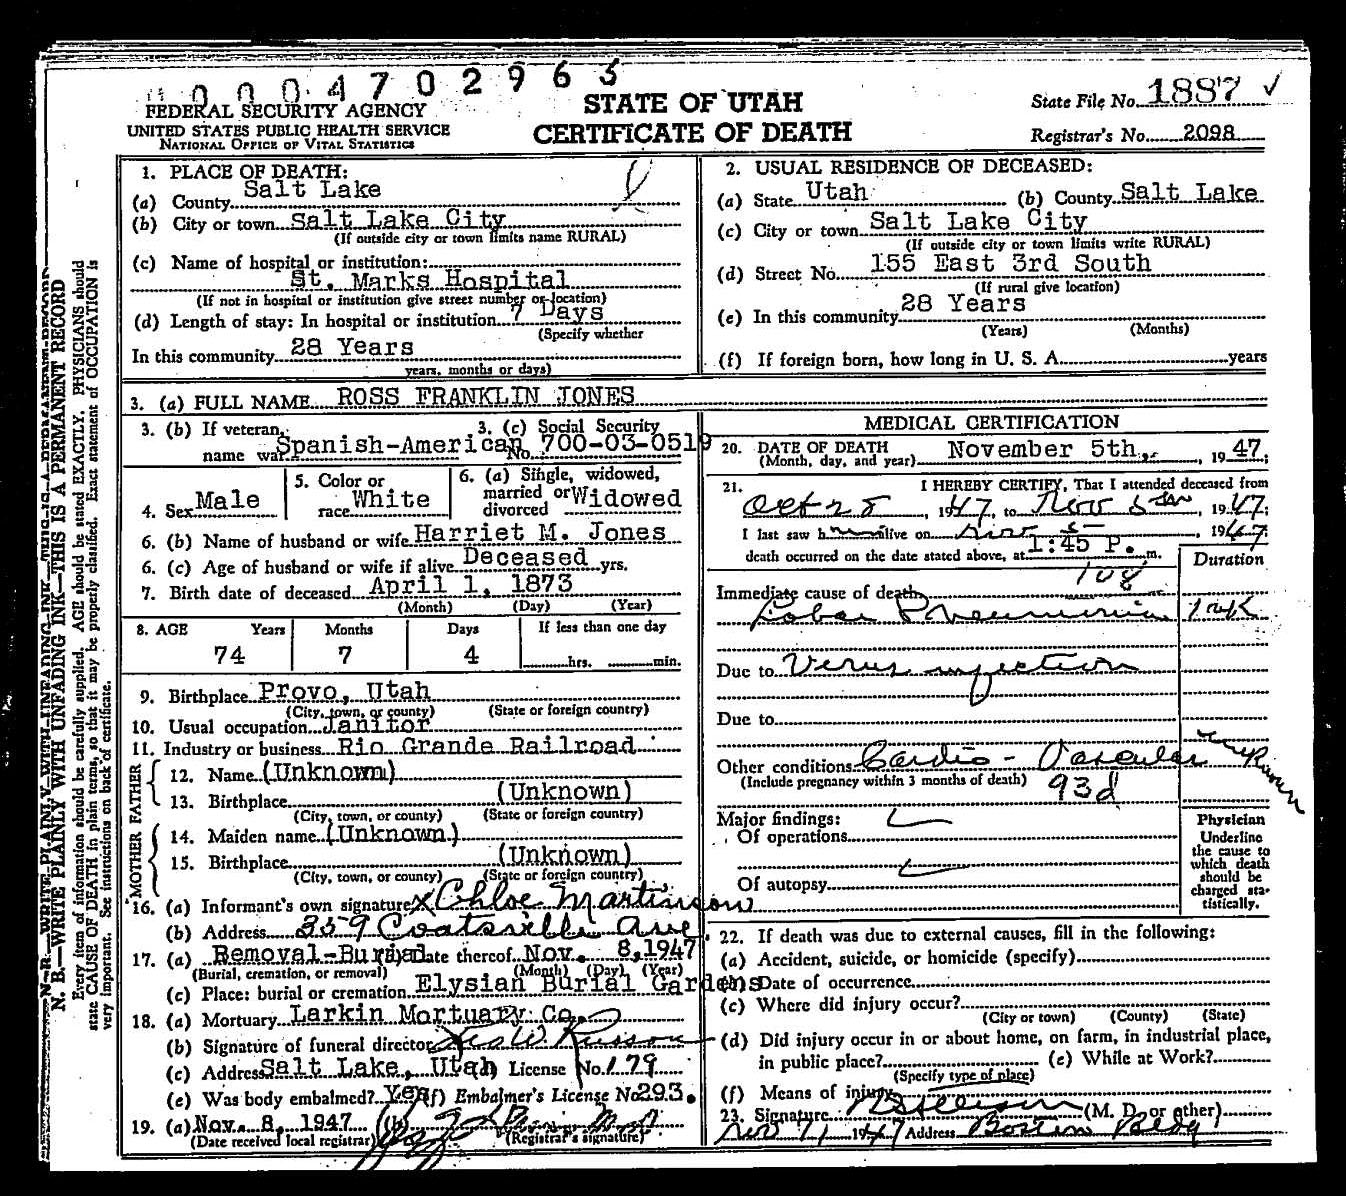 0004702963
FEDERAL SECURITY AGENCY
UNITED STATES PUBLIC HEALTH SERVICE
NATIONAL OFFICE OF VITAL STATISTICS
STATE OF UTAH
CERTIFICATE OF DEATH
State File No. 1887 ✓
Registrar's No. 2098
N. B.—WRITE PLAINLY WITH UNFADING INK—THIS IS A PERMANENT RECORD
Every item of information should be carefully supplied. AGE should be stated EXACTLY. PHYSICIANS should
state CAUSE OF DEATH in plain terms, so that it may be properly classified. Exact statement of OCCUPATION is
very important. See instructions on back of certificate.
1. PLACE OF DEATH:
(a) County Salt Lake
(b) City or town Salt Lake City
(If outside city or town limits name RURAL)
(c) Name of hospital or institution:
St. Marks Hospital
(If not in hospital or institution give street number or location)
(d) Length of stay: In hospital or institution 7 Days
(Specify whether
In this community 28 Years
years, months or days)
2. USUAL RESIDENCE OF DECEASED:
(a) State Utah (b) County Salt Lake
(c) City or town Salt Lake City
(If outside city or town limits write RURAL)
(d) Street No. 155 East 3rd South
(If rural give location)
(e) In this community 28 Years
(Years) (Months)
(f) If foreign born, how long in U. S. A. years
3. (a) FULL NAME ROSS FRANKLIN JONES
3. (b) If veteran, name war Spanish-American
3. (c) Social Security No. 700-03-0519
4. Sex Male
5. Color or race White
6. (a) Single, widowed, married or divorced Widowed
6. (b) Name of husband or wife Harriet M. Jones
6. (c) Age of husband or wife if alive Deceased yrs.
7. Birth date of deceased April 1, 1873
(Month) (Day) (Year)
8. AGE Years Months Days If less than one day
74 7 4 hrs. min.
9. Birthplace Provo, Utah
(City, town, or county) (State or foreign country)
10. Usual occupation Janitor
11. Industry or business Rio Grande Railroad
FATHER
12. Name (Unknown)
13. Birthplace (Unknown)
(City, town, or county) (State or foreign country)
MOTHER
14. Maiden name (Unknown)
15. Birthplace (Unknown)
(City, town, or county) (State or foreign country)
16. (a) Informant's own signature x Chloe Martinson
(b) Address 359 Coatsville Ave.
17. (a) Removal-Burial (b) Date thereof Nov. 8, 1947
(Burial, cremation, or removal) (Month) (Day) (Year)
(c) Place: burial or cremation Elysian Burial Gardens
18. (a) Mortuary Larkin Mortuary Co.
(b) Signature of funeral director
(c) Address Salt Lake, Utah (d) License No. 179
(e) Was body embalmed? Yes (f) Embalmer's License No. 293.
19. (a) Nov. 8, 1947 (b)
(Date received local registrar) (Registrar's signature)
MEDICAL CERTIFICATION
20. DATE OF DEATH November 5th, 1947;
(Month, day, and year)
21. I HEREBY CERTIFY, That I attended deceased from
Oct 28, 1947, to Nov 5th, 1947.
I last saw him alive on Nov 5 1947;
death occurred on the date stated above, at 1:45 P. m.
Duration
108
Immediate cause of death
Lobar Pneumonia 1 wk
Due to Virus infection
Due to
Other conditions Cardio-Vascular unknown
(Include pregnancy within 3 months of death) 93d
Major findings:
Of operations
Of autopsy
Physician
Underline
the cause to
which death
should be
charged sta-
tistically.
22. If death was due to external causes, fill in the following:
(a) Accident, suicide, or homicide (specify)
(b) Date of occurrence
(c) Where did injury occur?
(City or town) (County) (State)
(d) Did injury occur in or about home, on farm, in industrial place,
in public place? (e) While at Work?
(Specify type of place)
(f) Means of injury
23. Signature (M. D. or other)
Nov 7, 1947 Address Boston Bldg